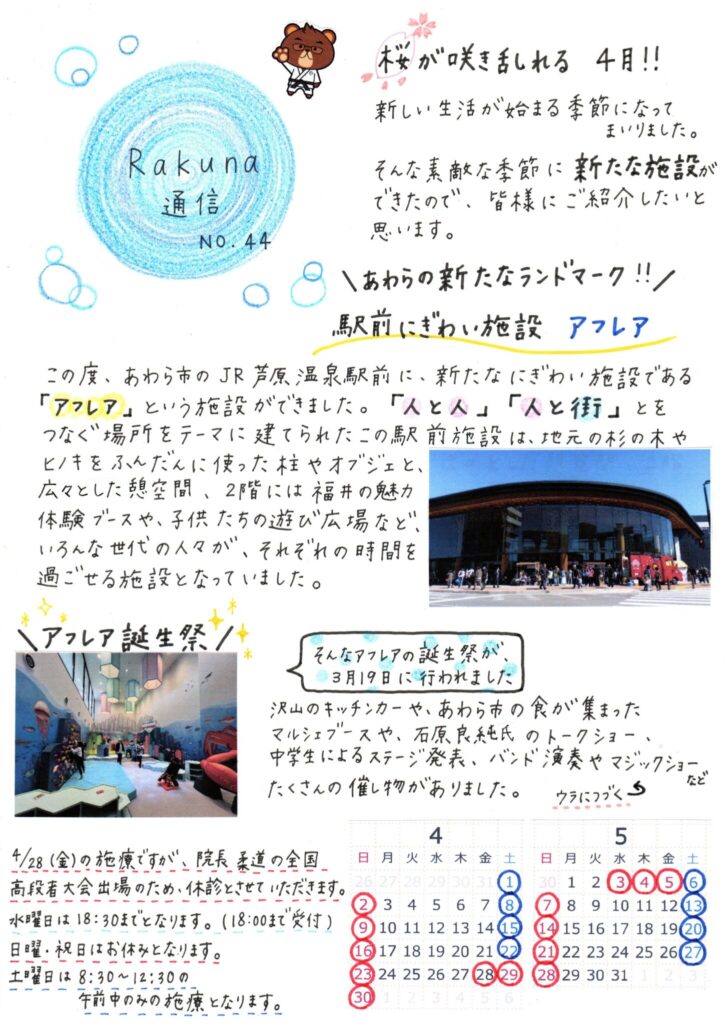 Rakuna
通信
NO.44
桜が咲き乱れる 4月!!
新しい生活が始まる季節になって
まいりました。
そんな素敵な季節に新たな施設が
できたので、皆様にご紹介したいと
思います。
\あわらの新たなランドマーク!!/
駅前にぎわい施設 アフレア
この度、あわら市のJR芦原温泉駅前に、新たなにぎわい施設である
「アフレア」という施設ができました。「人と人」「人と街」とを
つなぐ場所をテーマに建てられたこの駅前施設は、地元の杉の木や
ヒノキをふんだんに使った柱やオブジェと、
広々とした憩空間、2階には福井の魅力
体験ブースや、子供たちの遊び広場など、
いろんな世代の人々が、それぞれの時間を
過ごせる施設となっていました。
\アフレア誕生祭/
そんなアフレアの誕生祭が、
3月19日に行われました
沢山のキッチンカーや、あわら市の食が集まった
マルシェブースや、石原良純氏のトークショー、
中学生によるステージ発表、バンド演奏やマジックショーなど
たくさんの催し物がありました。
ウラにつづく
4/28(金)の施療ですが、院長柔道の全国
高段者大会出場のため、休診とさせていただきます。
水曜日は18:30までとなります。(18:00まで受付)
日曜・祝日はお休みとなります。
土曜日は8:30～12:30の
午前中のみの施療となります。
4
日 月 火 水 木 金 土
26 27 28 29 30 31 1
2 3 4 5 6 7 8
9 10 11 12 13 14 15
16 17 18 19 20 21 22
23 24 25 26 27 28 29
30 1 2 3 4 5 6
5
日 月 火 水 木 金 土
30 1 2 3 4 5 6
7 8 9 10 11 12 13
14 15 16 17 18 19 20
21 22 23 24 25 26 27
28 29 30 31 1 2 3